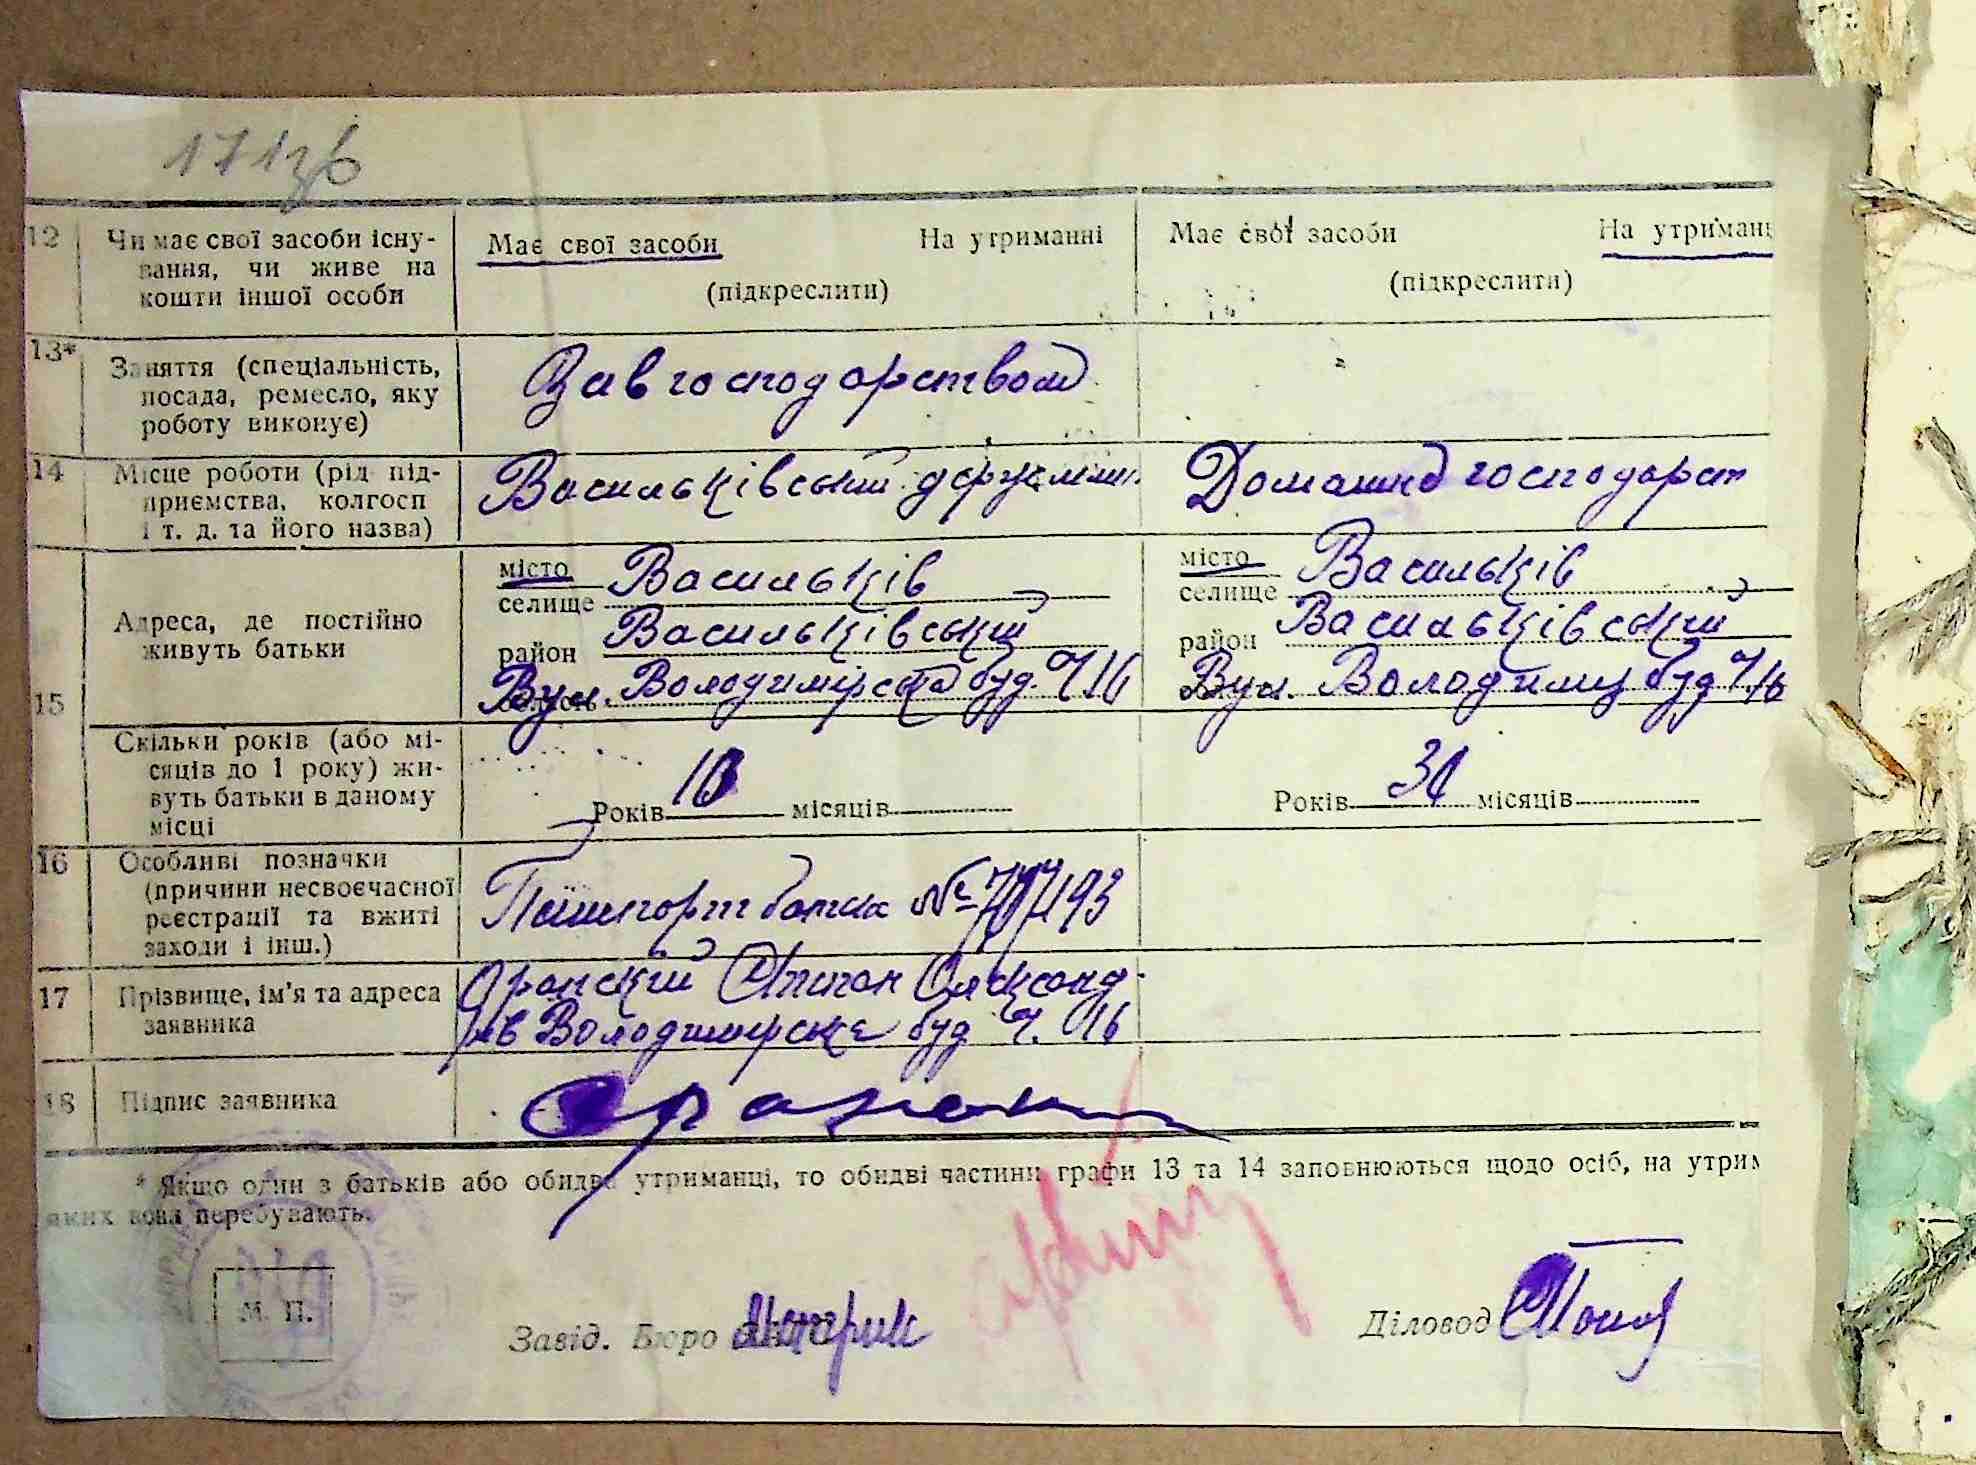 171зв
12 Чи має свої засоби існу-
вання, чи живе на
кошти іншої особи
Має свої засоби На утриманні
(підкреслити)
Має свої засоби На утриманн
(підкреслити)
13* Заняття (спеціальність,
посада, ремесло, яку
роботу виконує)
Завгосподарством
14 Місце роботи (рід під-
приємства, колгосп
і т. д. та його назва)
Васильківський держ.млин.
Домашнє господарст
15 Адреса, де постійно
живуть батьки
місто Васильків
селище
район Васильківський
Вул. Володимірська буд. Ч 16
місто Васильків
селище
район Васильківський
Вул. Володимир буд Ч. 16
Скільки років (або мі-
сяців до 1 року) жи-
вуть батьки в даному
місці
Років 10 місяців
Років 31 місяців
16 Особливі позначки
(причини несвоєчасної
реєстрації та вжиті
заходи і інш.)
Пашпорт батька № 707193
17 Прізвище, ім'я та адреса
заявника
Антон Олександ-
рів Володимирська буд Ч. 16
18 Підпис заявника
* Якщо один з батьків або обидва утриманці, то обидві частини графи 13 та 14 заповнюються щодо осіб, на утрим
яких вони перебувають.
М. П.
Завід. Бюро
Діловод